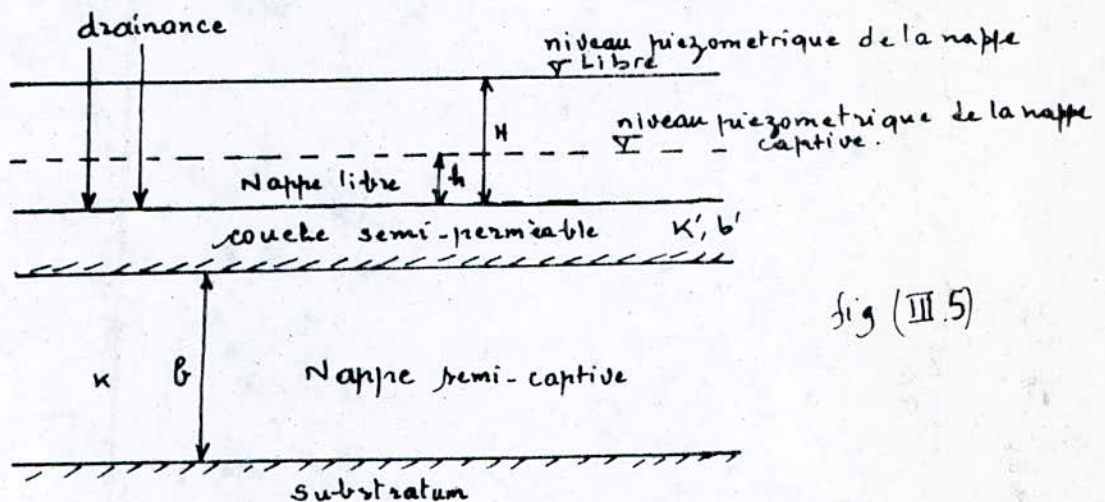 drainance
niveau piezometrique de la nappe
Libre
H
niveau piezometrique de la nappe
captive.
Nappe libre
h
couche semi-perméable K', b'
fig (III.5)
K b Nappe semi-captive
substratum